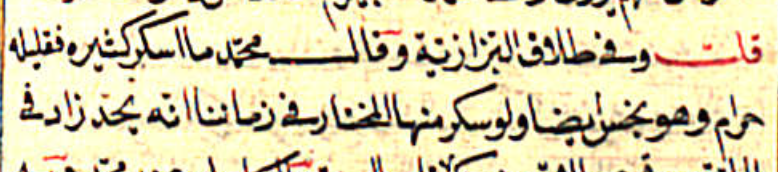 قلت وفي طلاق البزازية وقال محمد ما اسكر كثيره فقليله
حرام وهو نجس ايضا ولو سكر منها المختار في زماننا انه يحد زاد في